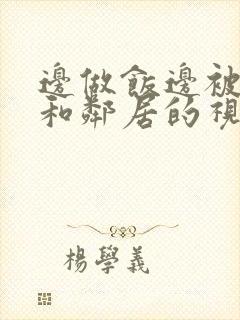 邊做飯邊被
和鄰居的視
楊學義